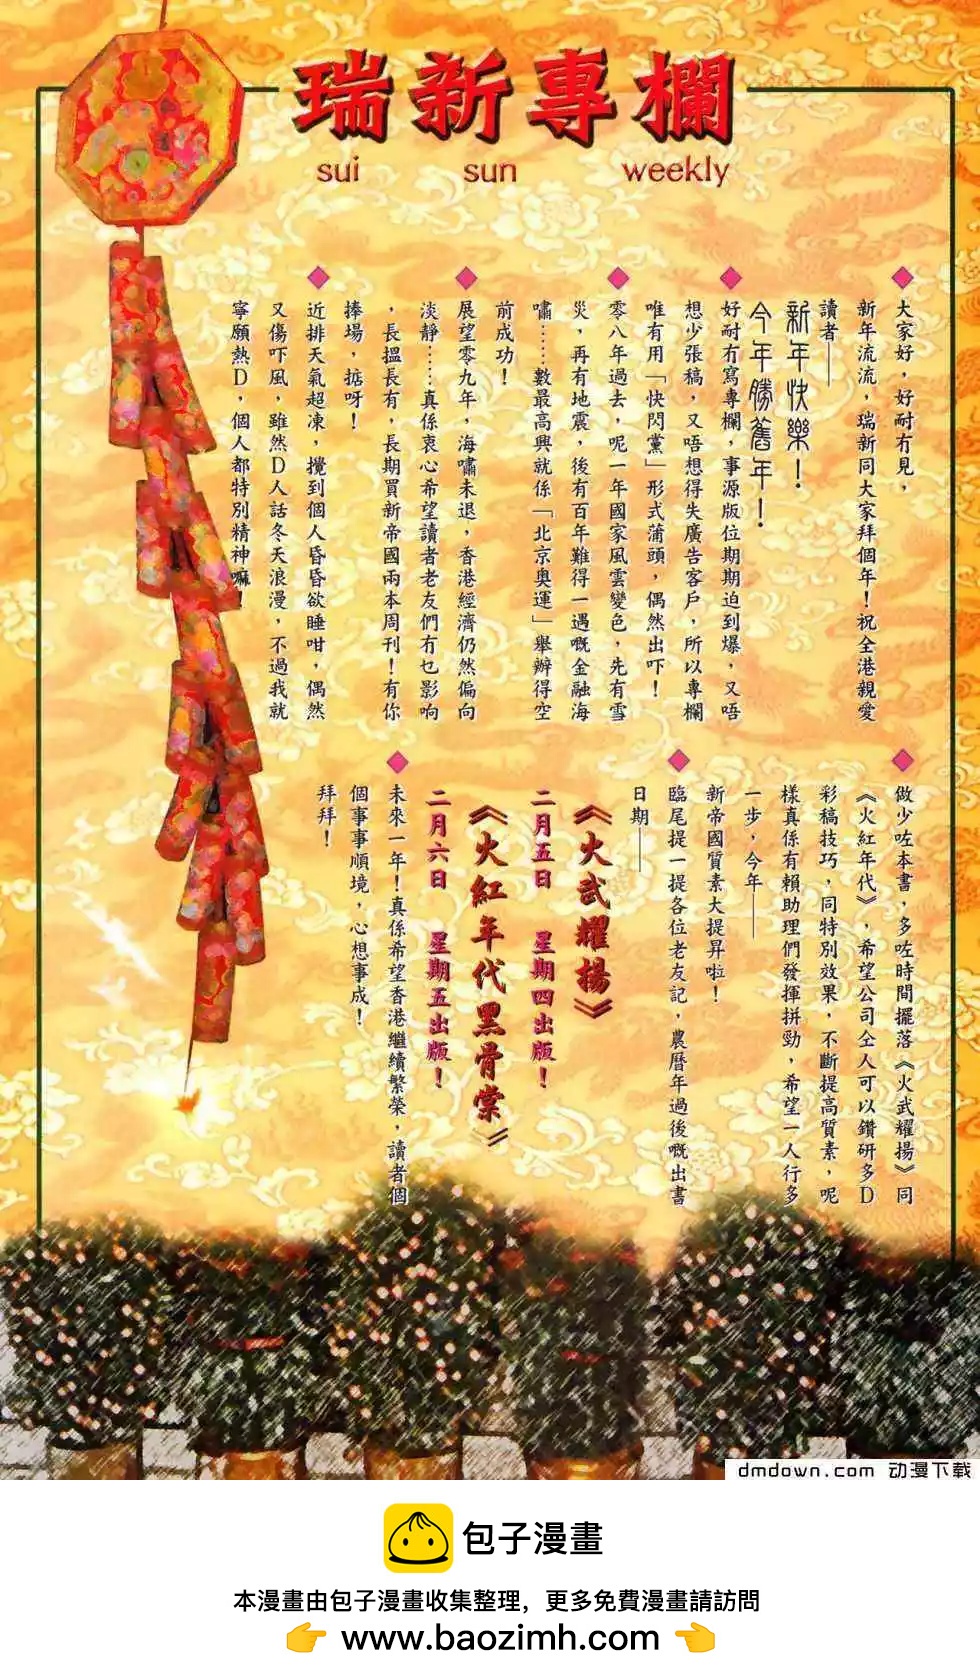 瑞新專欄
sui sun weekly
大家好，好耐有見，
新年流流，瑞新同大家拜個年！祝全港親愛
讀者——
新年快樂！
今年勝舊年！
好耐冇寫專欄，事源版位期期迫到爆，又唔
想少張稿，又唔想得失廣告客戶，所以專欄
唯有用「快閃黨」形式蒲頭，偶然出吓！
零八年過去，呢一年國家風雲變色，先有雪
災，再有地震，後有百年難得一遇嘅金融海
嘯……數最高興就係「北京奧運」舉辦得空
前成功！
展望零九年，海嘯未退，香港經濟仍然偏向
淡靜……真係衷心希望讀者老友們冇乜影响
，長搵長有，長期買新帝國兩本周刊！有你
捧場，掂呀！
近排天氣超凍，攪到個人昏昏欲睡咁，偶然
又傷吓風，雖然D人話冬天浪漫，不過我就
寧願熱D，個人都特別精神嘛！
做少咗本書，多咗時間擺落《火武耀揚》同
《火紅年代》，希望公司仝人可以鑽研多D
彩稿技巧，同特別效果，不斷提高質素，呢
樣真係有賴助理們發揮拼勁，希望一人行多
一步，今年——
新帝國質素大提昇啦！
臨尾提一提各位老友記，農曆年過後嘅出書
日期——
《火武耀揚》
二月五日 星期四出版！
《火紅年代黑骨棠》
二月六日 星期五出版！
未來一年！真係希望香港繼續繁榮，讀者個
個事事順境，心想事成！
拜拜！
dmdown.com 动漫下载
包子漫畫
本漫畫由包子漫畫收集整理，更多免費漫畫請訪問
www.baozimh.com